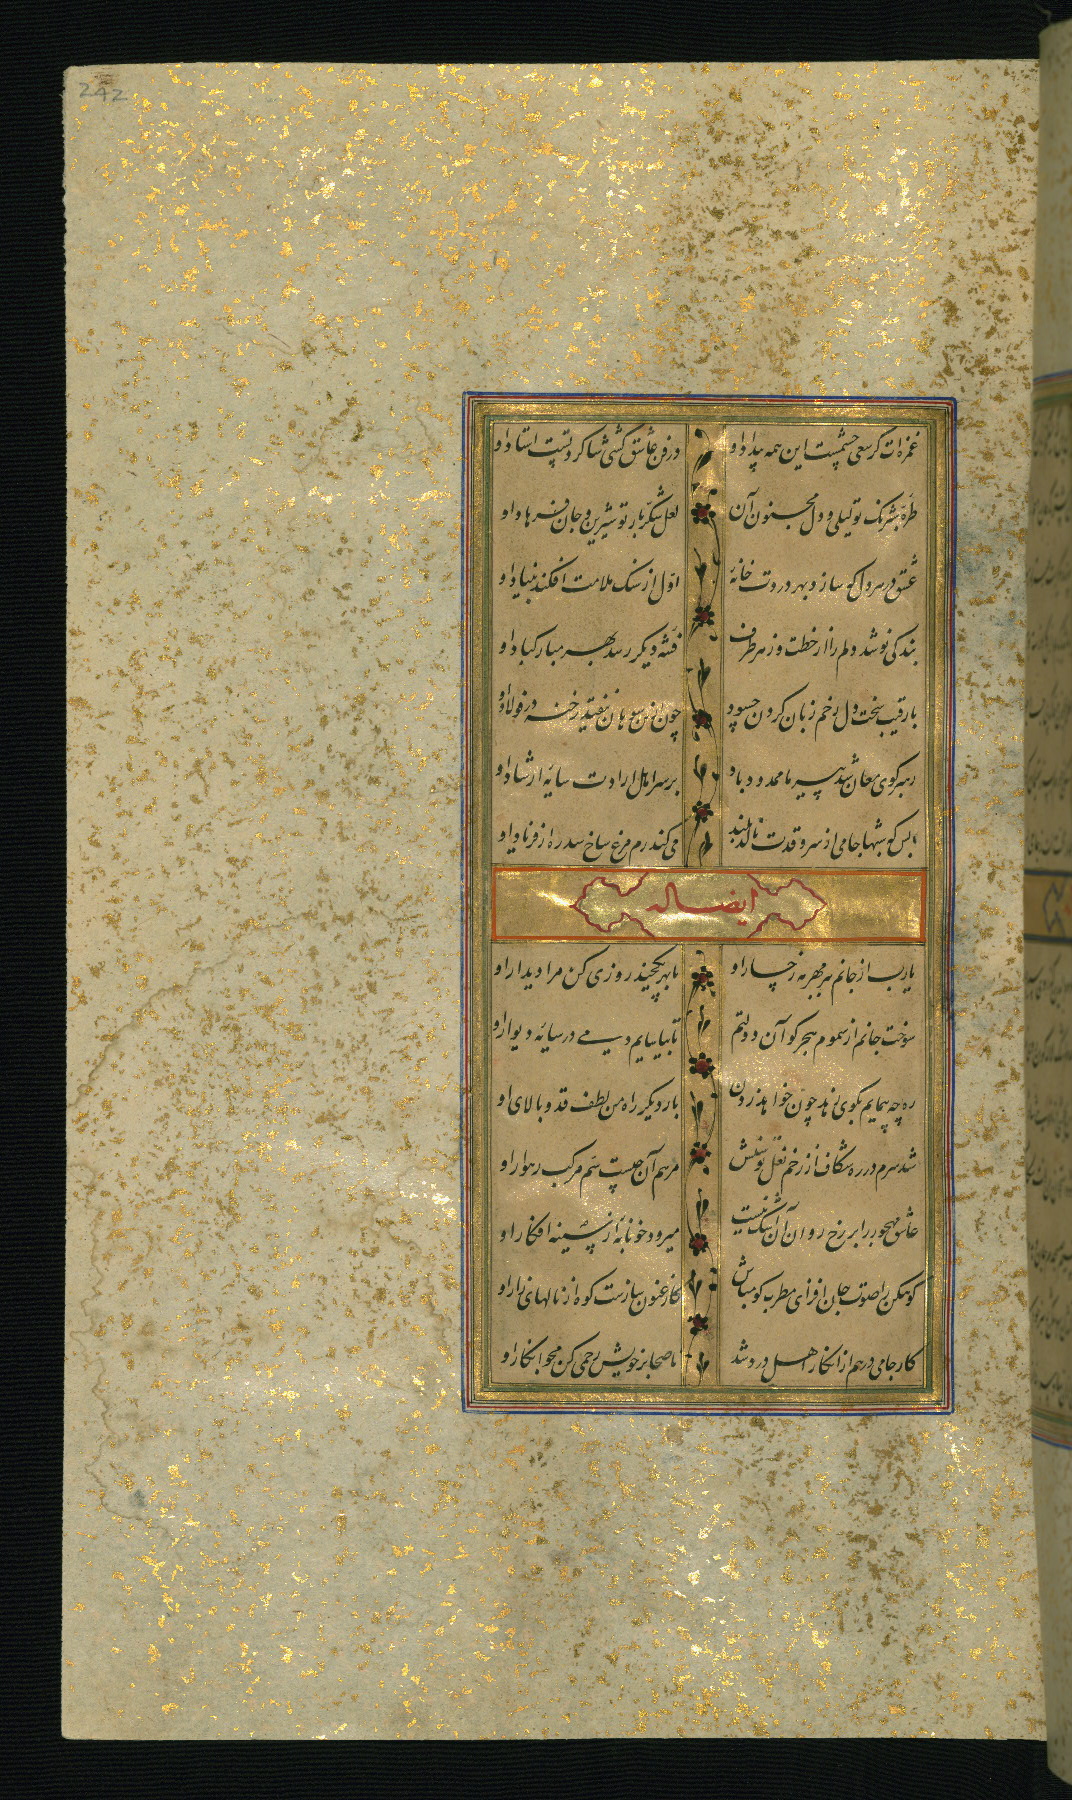 242
غمزه‌ات کز سعی چشمست این همه بیداد او در فن عاشق کشی شاکردتست استاد او
طره شبرنک تو لیلی و دل مجنون آن لعل شکربار تو شیرین و جان فرهاد او
عشق در هر دل که سازد بهر دردت خانهٔ اول از سنک ملامت افکند بنیاد او
بندکی نو شد دلم را از خطت وز هر طرف فتنهٔ دیکر رسد بهر مبارکباد او
با رقیب سخت دل زخم زبان کردن چسود چون ازین سوهان نیفتد رخنه در فولاد او
رهبر کوی مغان شد پیر ما ممدود باد بر سر اهل ارادت سایهٔ ارشاد او
بس که شبها جامی از سرو قدت نالد بلند می‌کند رم مرغ شاخ سدره از فریاد او
ایضا له
یارب از جانم مبر مهر رخسار او یا بهر یکچند روزی کن مرا دیدار او
سوخت جانم از سموم هجر کو آن دولتم تا بیاسایم دمی در سایهٔ دیوار او
ره چه پیمایم بکوی زهد چون خواهد زدن بار دیکر راه من لطف قد و بالای او
شد سرم در ره شکاف از زخم نعل توسنش مرهم آن چیست سم مرکب رهوار او
عاشق مهجور را بر رخ روان آن اشک نیست میرود خونابه از سینه افکار او
کوهکن را صوت جان افزای مطرب کو مباش کارغنون ساز ست کوه از نالهای زار او
کار جامی درهم از انکار اهل درد شد ناصحا بر خویش رحمی کن مجو انکار او